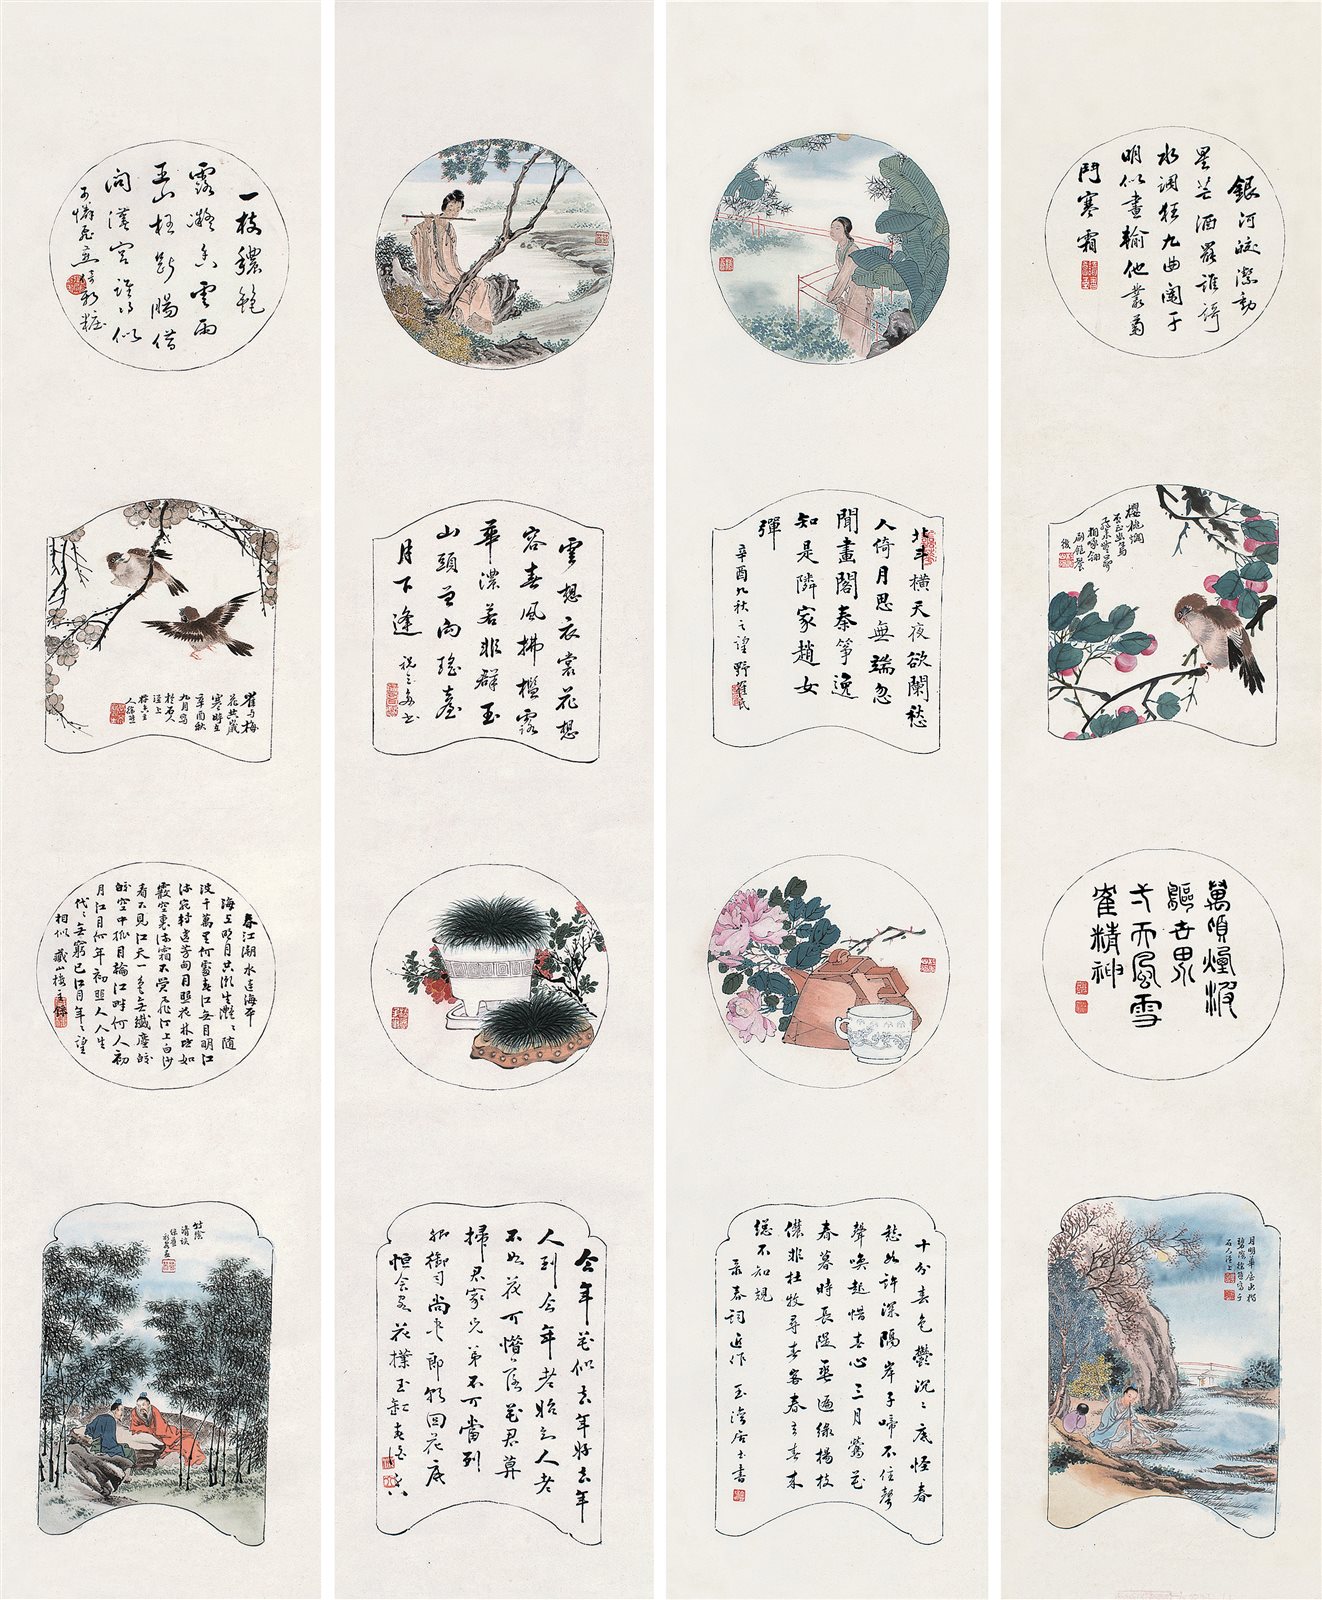 銀河皎潔動
星芒酒羅誰語
水調狂九曲闌干
明似畫輸他叢菊
鬥寒霜
櫻桃爛
相喚
萬頃煙波
鷗世界
九天風雪
崔精神
月明華屋
北斗橫天夜欲闌愁
人倚月思無端忽
聞畫閣秦箏逸
知是隣家趙女
彈
辛酉九秋之望野崔氏
十分春色鬱沉沉底怪春
愁如許深隔岸子啼不住聲
聲喚起惜春心三月鶯花
春暮時長隄垂遍綠楊枝
儂非杜牧尋春客春去春來
總不知 規
录春詞近作 玉 居士書
雲想衣裳花想
容春風拂檻露
華濃若非群玉
山頭見向瑤臺
月下逢
今年花似去年好去年
人到今年老始知人老
不如花可惜落花君莫
掃君家兄弟不可當列
卿御史尚書郎朝回花底
恒會客花撲玉缸春酒香
一枝穠艷
露凝香雲雨
巫山枉斷腸借
問漢宮誰得似
可憐飛燕倚新粧
崔与梅
花共歲
寒時在
辛酉秋
九月寫
於石人
汪上
春江潮水連海平
海上明月共潮生灩灩隨
波千萬里何處春江無月明江
流宛轉遶芳甸月照花林皆如
霰空裏流霜不覺飛汀上白沙
看不見江天一色無纖塵皎
皎空中孤月輪江畔何人初
見月江月何年初照人人生
代代無窮已江月年年望
相似
竹陰
清談